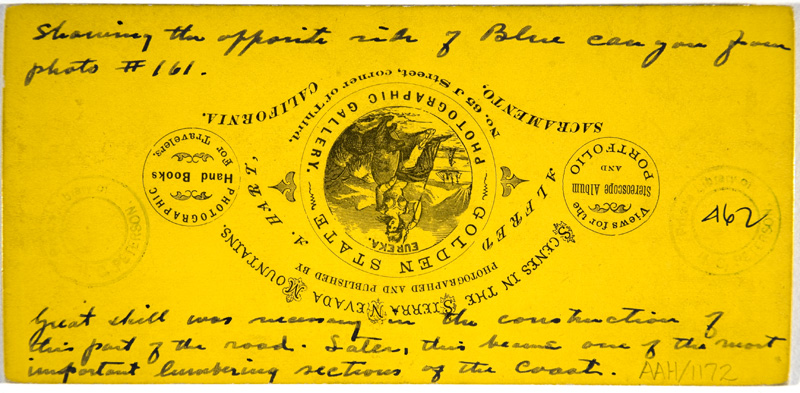 Showing the opposite side of Blue canyon from
photo # 161.
462
Great skill was necessary in the construction of
this part of the road. Later, this became one of the most
important lumbering sections of the Coast.
AAH/1172
SCENES IN THE SIERRA NEVADA MOUNTAINS,
PHOTOGRAPHED AND PUBLISHED BY
ALFRED A. HART,
GOLDEN STATE
PHOTOGRAPHIC GALLERY.
EUREKA.
No. 65 J Street, corner of Third.
SACRAMENTO, CALIFORNIA.
Views for the
Stereoscope Album
AND
PORTFOLIO
PHOTOGRAPHIC
Hand Books
For Travelers.